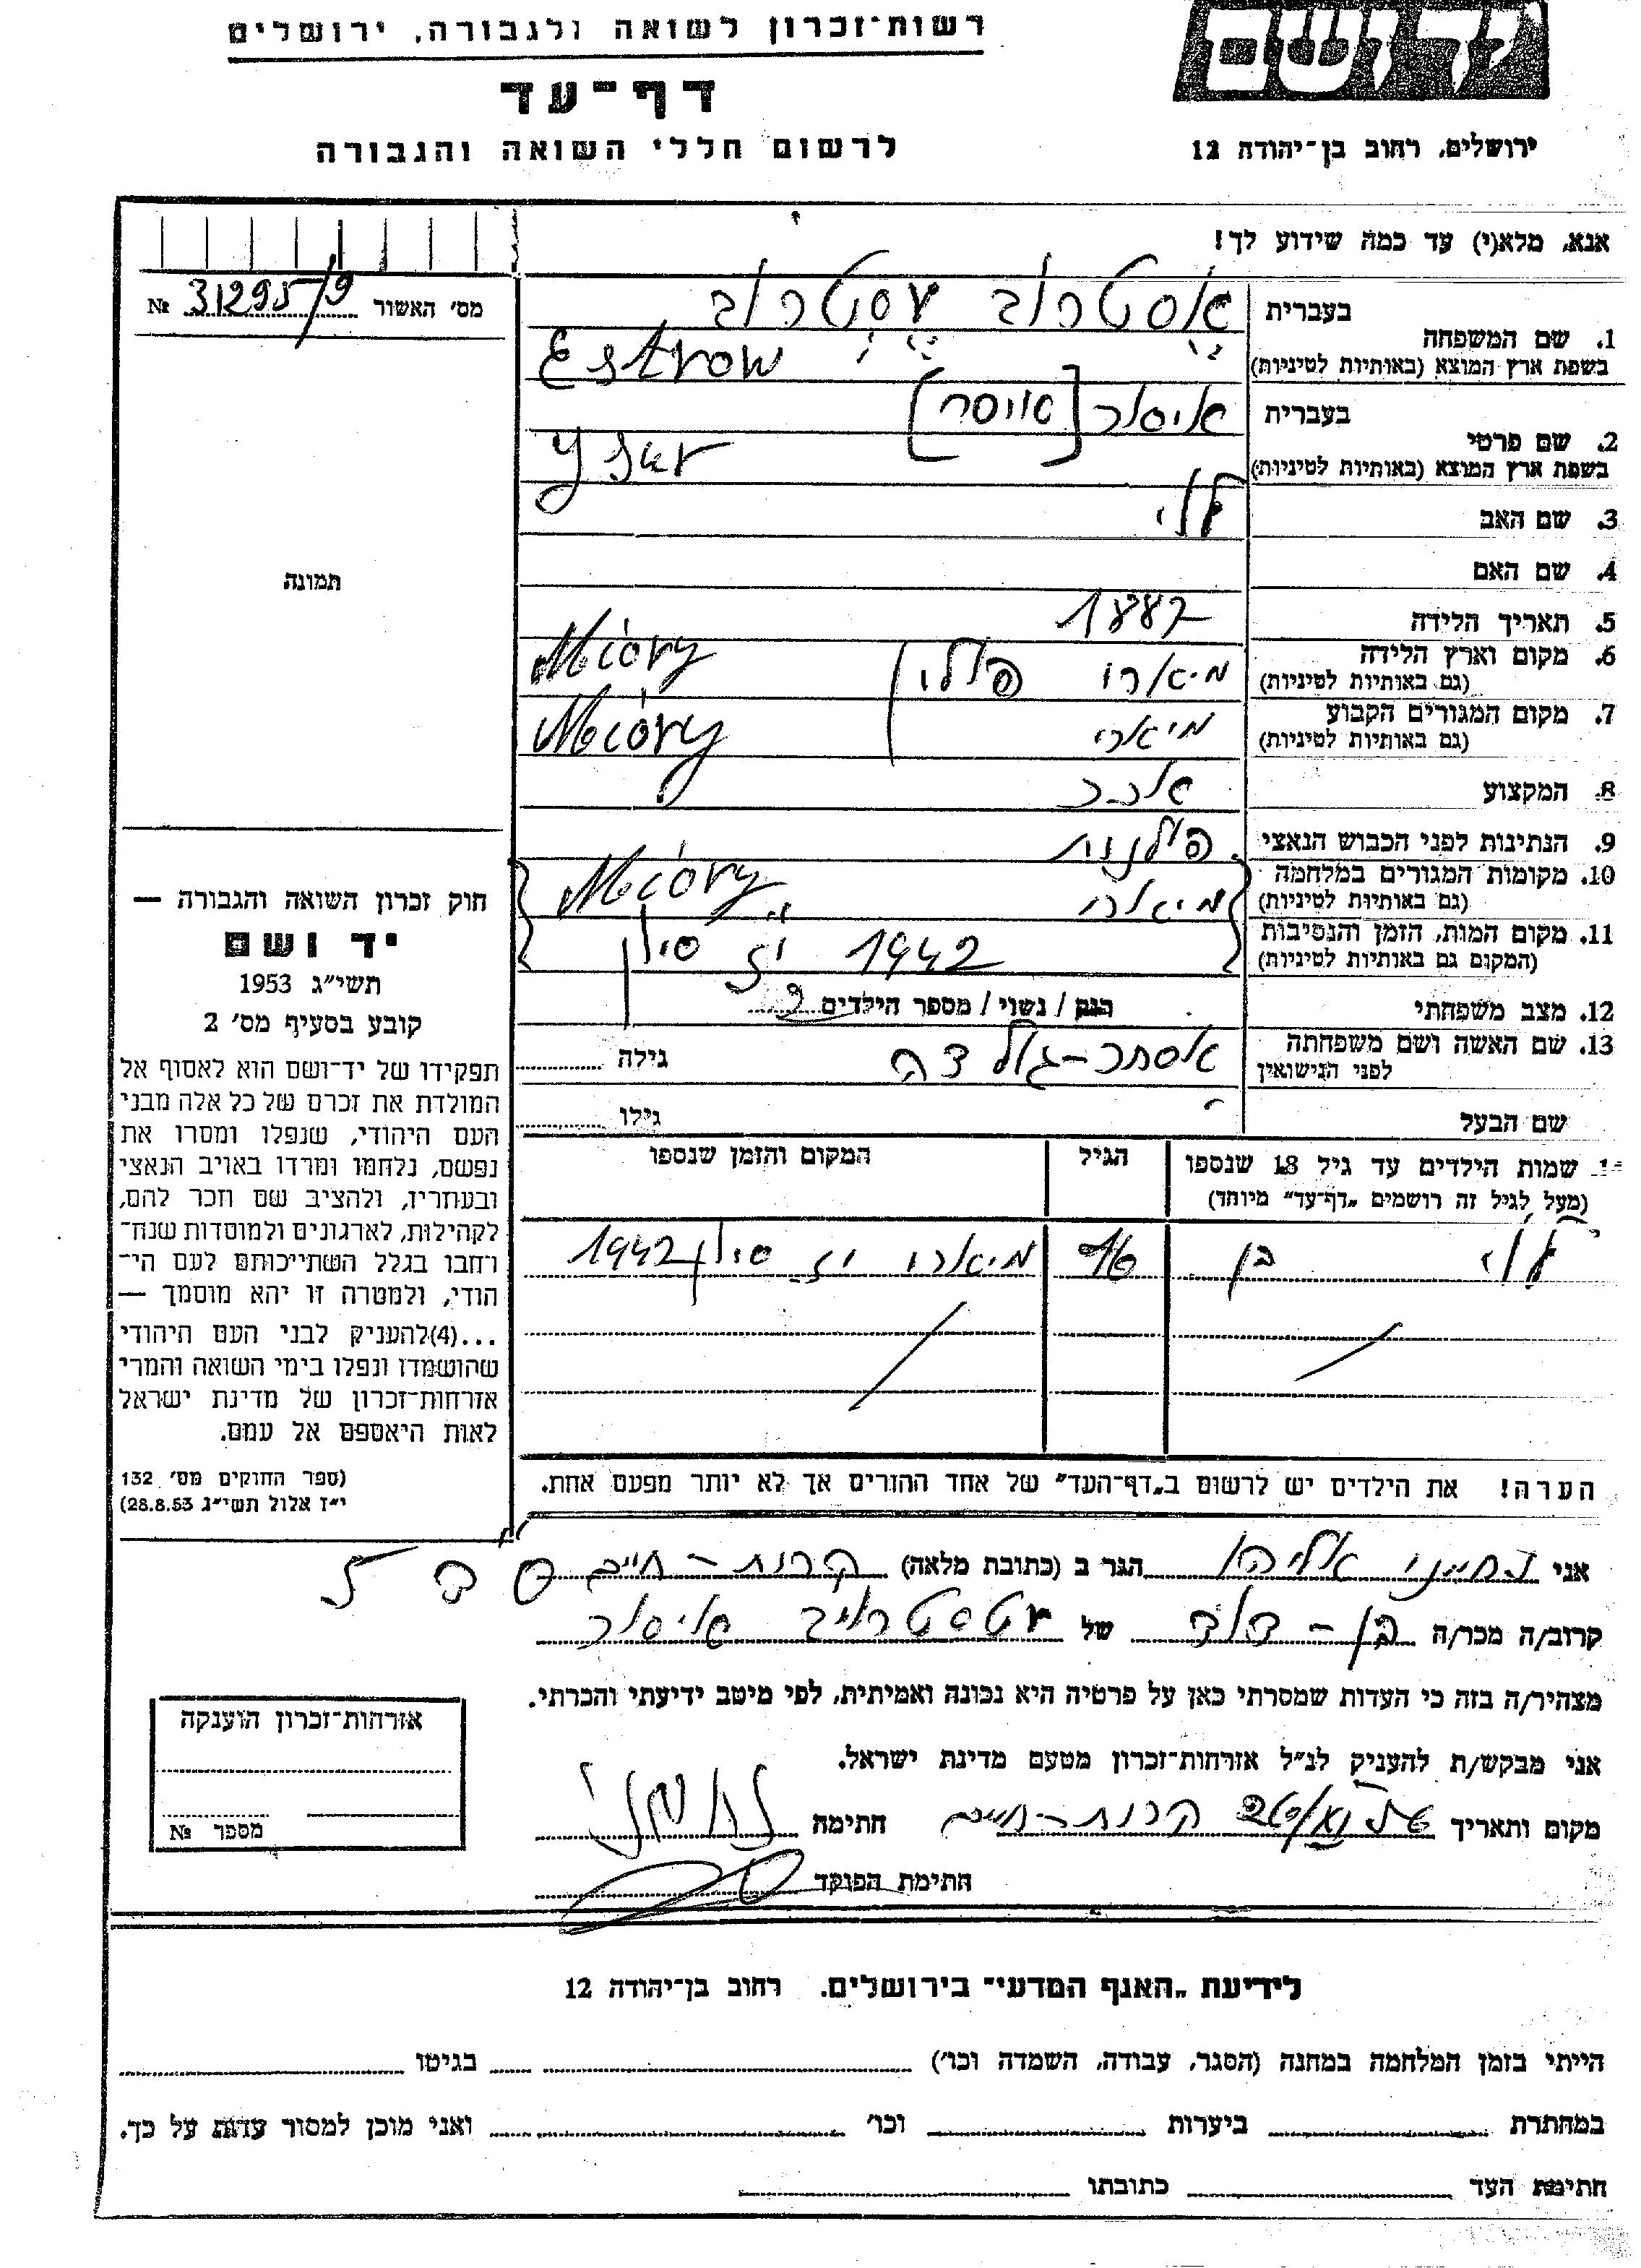 רשות־זכרון לשואה ולגבורה, ירושלים
יד ושם
דף־עד
לרשום חללי השואה והגבורה
ירושלים, רחוב בן־יהודה 12
אנא, מלא(י) עד כמה שידוע לך!
מס' האשור № 31295/9
1. שם המשפחה
בעברית אסטרוב עסטרוב
בשפת ארץ המוצא (באותיות לטיניות) Estrow
2. שם פרטי
בעברית איסר [סויסר]
בשפת ארץ המוצא (באותיות לטיניות) Yser
3. שם האב לוי
4. שם האם
5. תאריך הלידה 1887
6. מקום וארץ הלידה (גם באותיות לטיניות) מיארי פולין Mióry
7. מקום המגורים הקבוע (גם באותיות לטיניות) מיארי Mióry
8. המקצוע
9. הנתינות לפני הכבוש הנאצי פולנית
10. מקומות המגורים במלחמה (גם באותיות לטיניות) מיארי Mióry
11. מקום המות, הזמן והנסיבות (המקום גם באותיות לטיניות) 1942 יז סיון
12. מצב משפחתי רווק / נשוי / מספר הילדים
13. שם האשה ושם משפחתה לפני הנישואין אסתר־גולדה גילה
שם הבעל גילו
תמונה
שמות הילדים עד גיל 18 שנספו
(מעל לגיל זה רושמים „דף־עד" מיוחד)
הגיל
המקום והזמן שנספו
לוי בן מיארי יז סיון 1942
הערה! את הילדים יש לרשום ב„דף־העד" של אחד ההורים אך לא יותר מפעם אחת.
חוק זכרון השואה והגבורה —
יד ושם
תשי"ג 1953
קובע בסעיף מס' 2
תפקידו של יד־ושם הוא לאסוף אל
המולדת את זכרם של כל אלה מבני
העם היהודי, שנפלו ומסרו את
נפשם, נלחמו ומרדו באויב הנאצי
ובעוזריו, ולהציב שם וזכר להם,
לקהילות, לארגונים ולמוסדות שנח־
רבו בגלל השתייכותם לעם הי־
הודי, ולמטרה זו יהא מוסמך —
...(4)להעניק לבני העם היהודי
שהושמדו ונפלו בימי השואה והמרי
אזרחות־זכרון של מדינת ישראל
לאות היאספם אל עמם.
(ספר החוקים מס' 132
י"ז אלול תשי"ג 28.8.53)
אני נחמני אליהו הגר ב (כתובת מלאה) קרית־חיים
קרוב/ה מכר/ה בן־דוד של עסטרוב איסר
מצהיר/ה בזה כי העדות שמסרתי כאן על פרטיה היא נכונה ואמיתית, לפי מיטב ידיעתי והכרתי.
אני מבקש/ת להעניק לנ"ל אזרחות־זכרון מטעם מדינת ישראל.
מקום ותאריך קרית־חיים חתימה נחמני
חתימת הפוקד
אזרחות־זכרון הוענקה
מספר №
לידיעת „האגף המדעי" בירושלים. רחוב בן־יהודה 12
הייתי בזמן המלחמה במחנה (הסגר, עבודה, השמדה וכו') בגיטו
במחתרת ביערות וכו' ואני מוכן למסור עדות על כך.
חתימת העד כתובתו